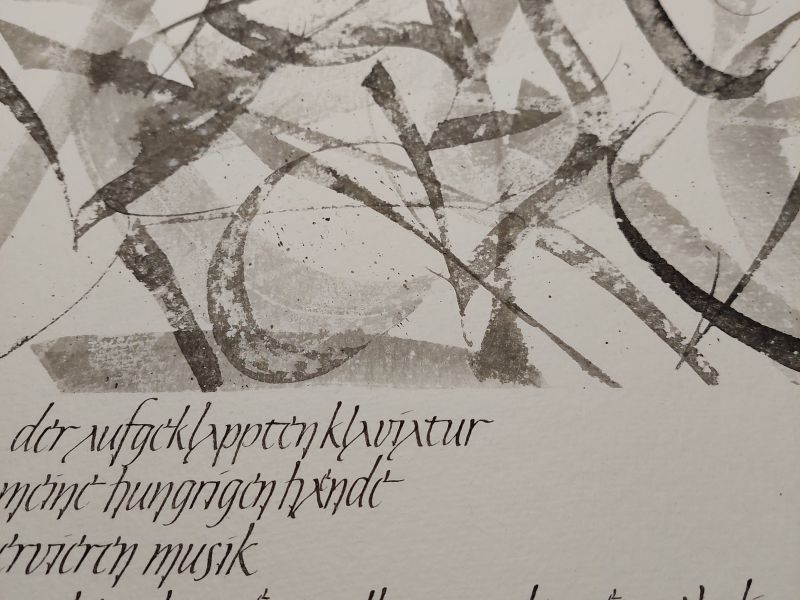 der aufgeklappten klaviatur
meine hungrigen hände
ervieren musik